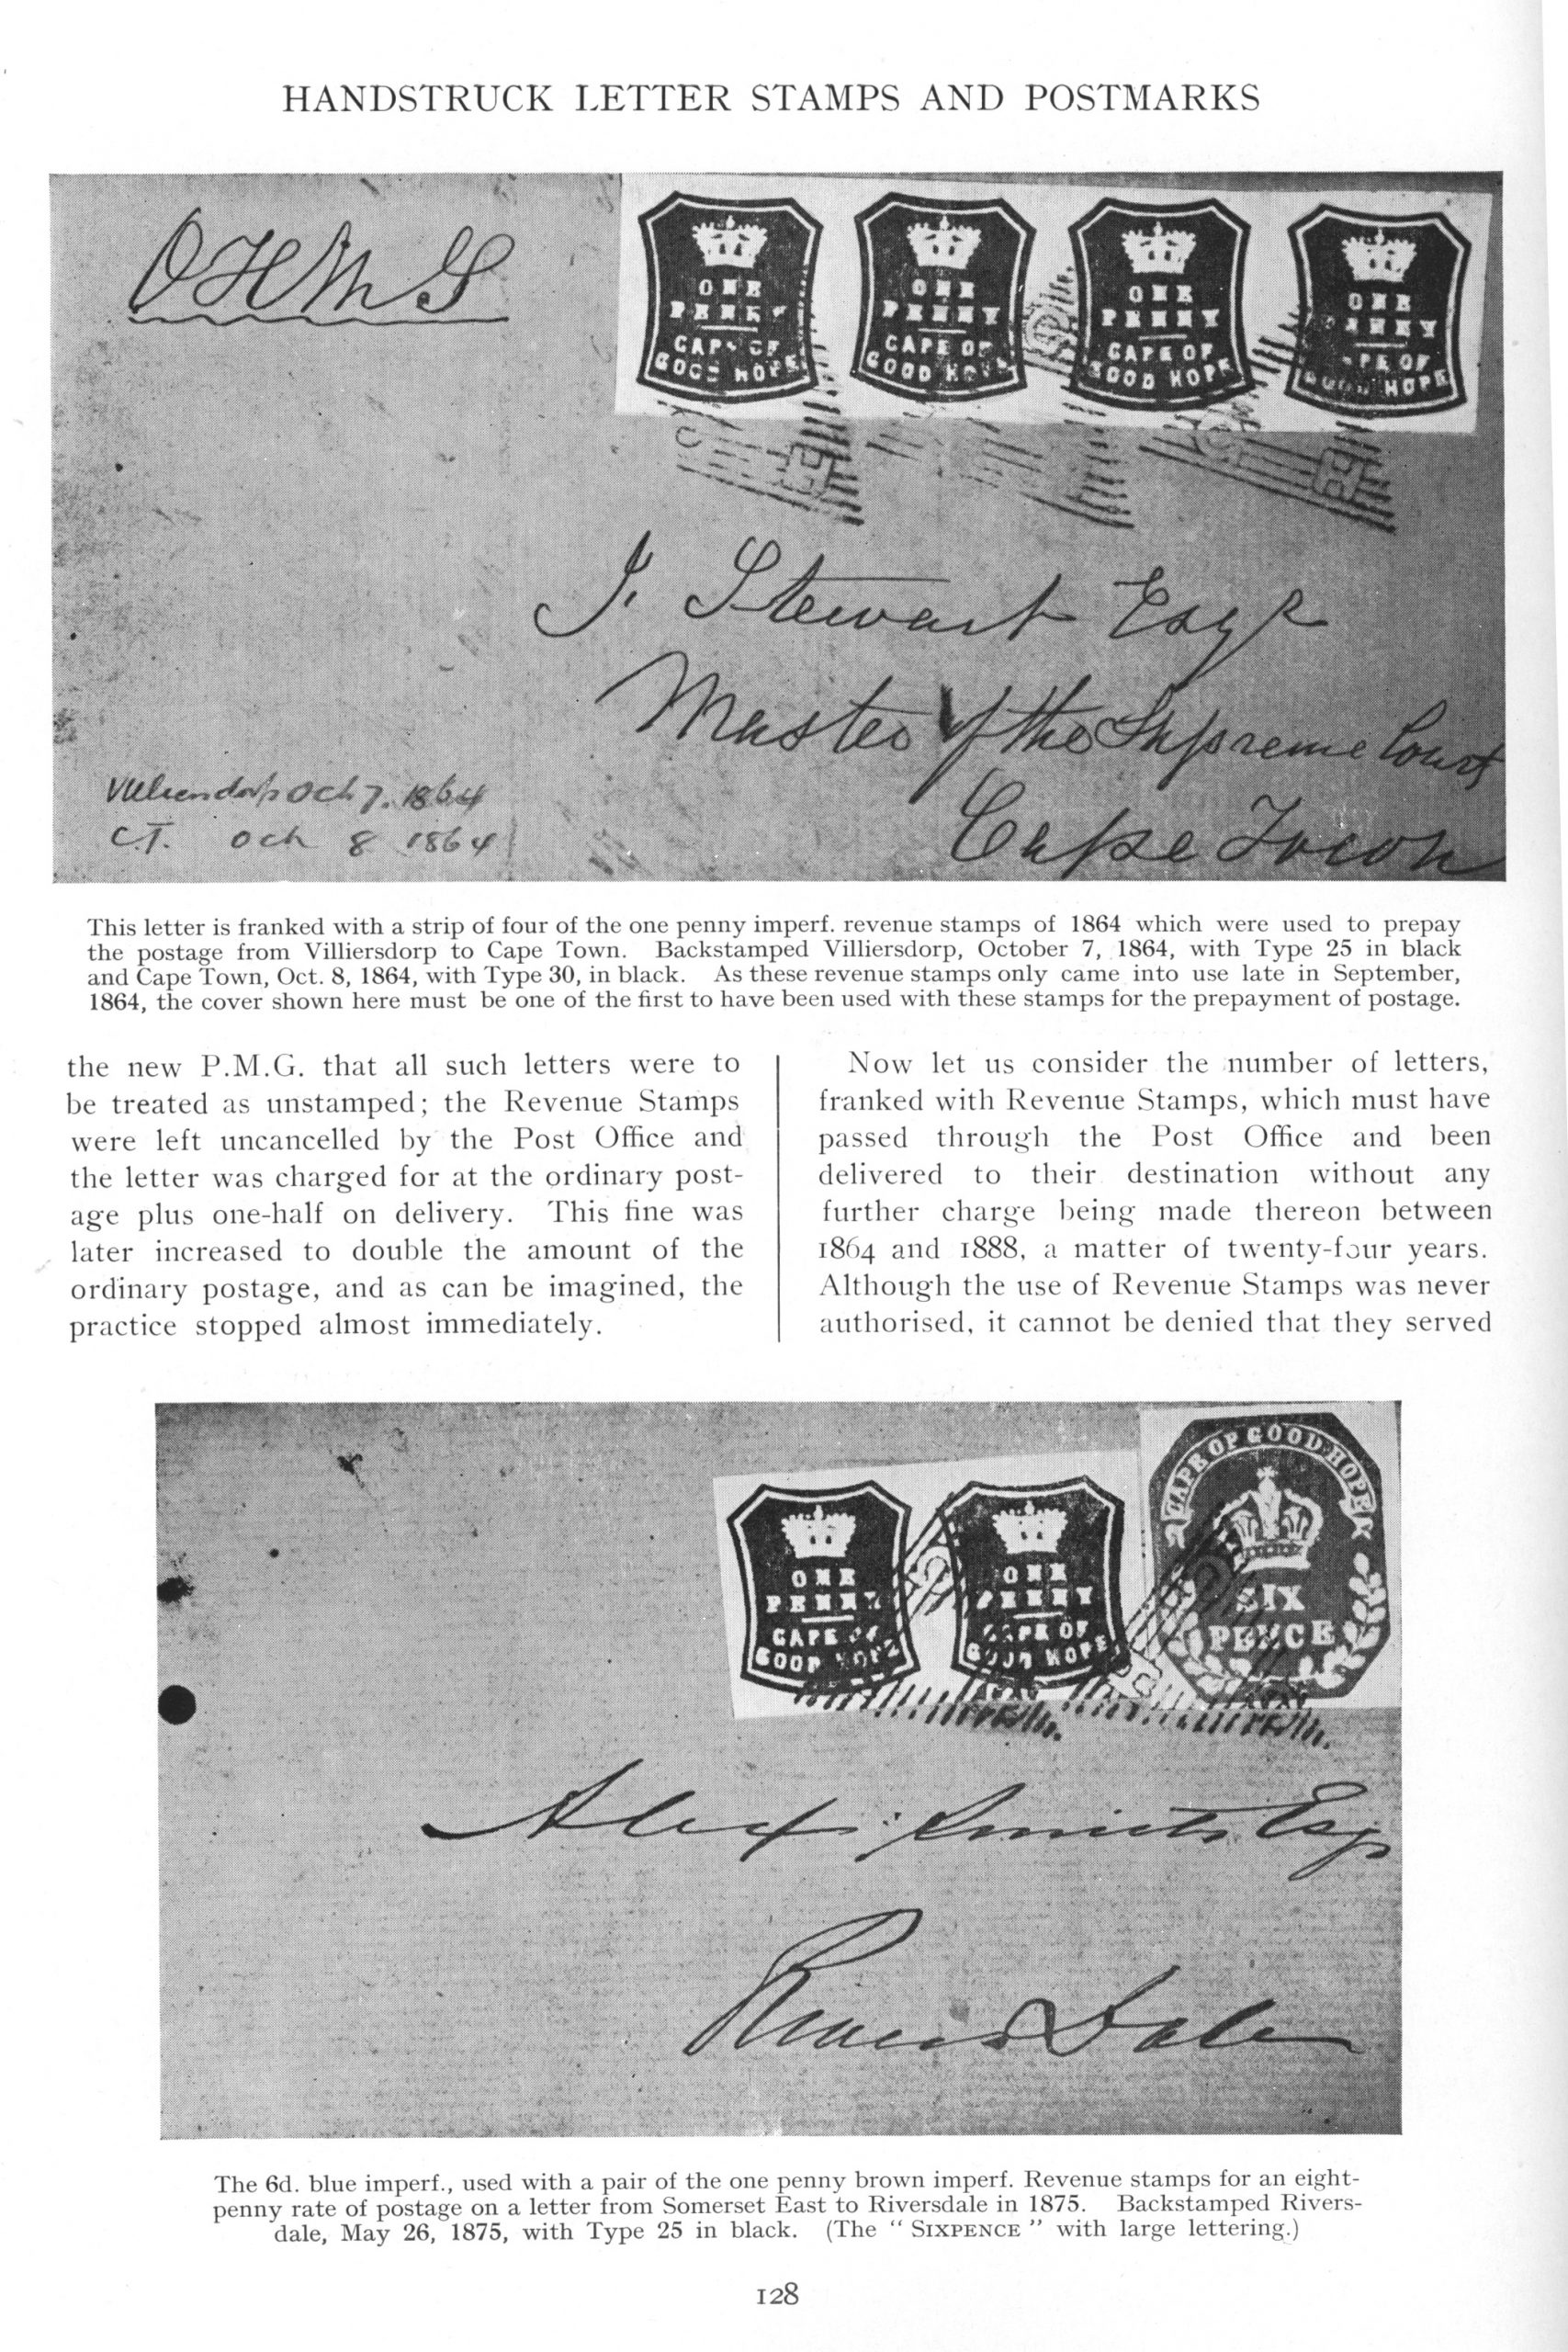 HANDSTRUCK LETTER STAMPS AND POSTMARKS
OHMS
ONE
PENNY
CAPE OF
GOOD HOPE
ONE
PENNY
CAPE OF
GOOD HOPE
ONE
PENNY
CAPE OF
GOOD HOPE
ONE
PENNY
CAPE OF
GOOD HOPE
J. Stewart Esqr
Master of the Supreme Court
Cape Town
Villiersdorp Oct 7. 1864
C.T. Oct 8 1864
This letter is franked with a strip of four of the one penny imperf. revenue stamps of 1864 which were used to prepay
the postage from Villiersdorp to Cape Town. Backstamped Villiersdorp, October 7, 1864, with Type 25 in black
and Cape Town, Oct. 8, 1864, with Type 30, in black. As these revenue stamps only came into use late in September,
1864, the cover shown here must be one of the first to have been used with these stamps for the prepayment of postage.
the new P.M.G. that all such letters were to
be treated as unstamped; the Revenue Stamps
were left uncancelled by the Post Office and
the letter was charged for at the ordinary post-
age plus one-half on delivery. This fine was
later increased to double the amount of the
ordinary postage, and as can be imagined, the
practice stopped almost immediately.
Now let us consider the number of letters,
franked with Revenue Stamps, which must have
passed through the Post Office and been
delivered to their destination without any
further charge being made thereon between
1864 and 1888, a matter of twenty-four years.
Although the use of Revenue Stamps was never
authorised, it cannot be denied that they served
ONE
PENNY
CAPE OF
GOOD HOPE
ONE
PENNY
CAPE OF
GOOD HOPE
CAPE OF GOOD HOPE
SIX
PENCE
Esq
The 6d. blue imperf., used with a pair of the one penny brown imperf. Revenue stamps for an eight-
penny rate of postage on a letter from Somerset East to Riversdale in 1875. Backstamped Rivers-
dale, May 26, 1875, with Type 25 in black. (The “ SIXPENCE ” with large lettering.)
128